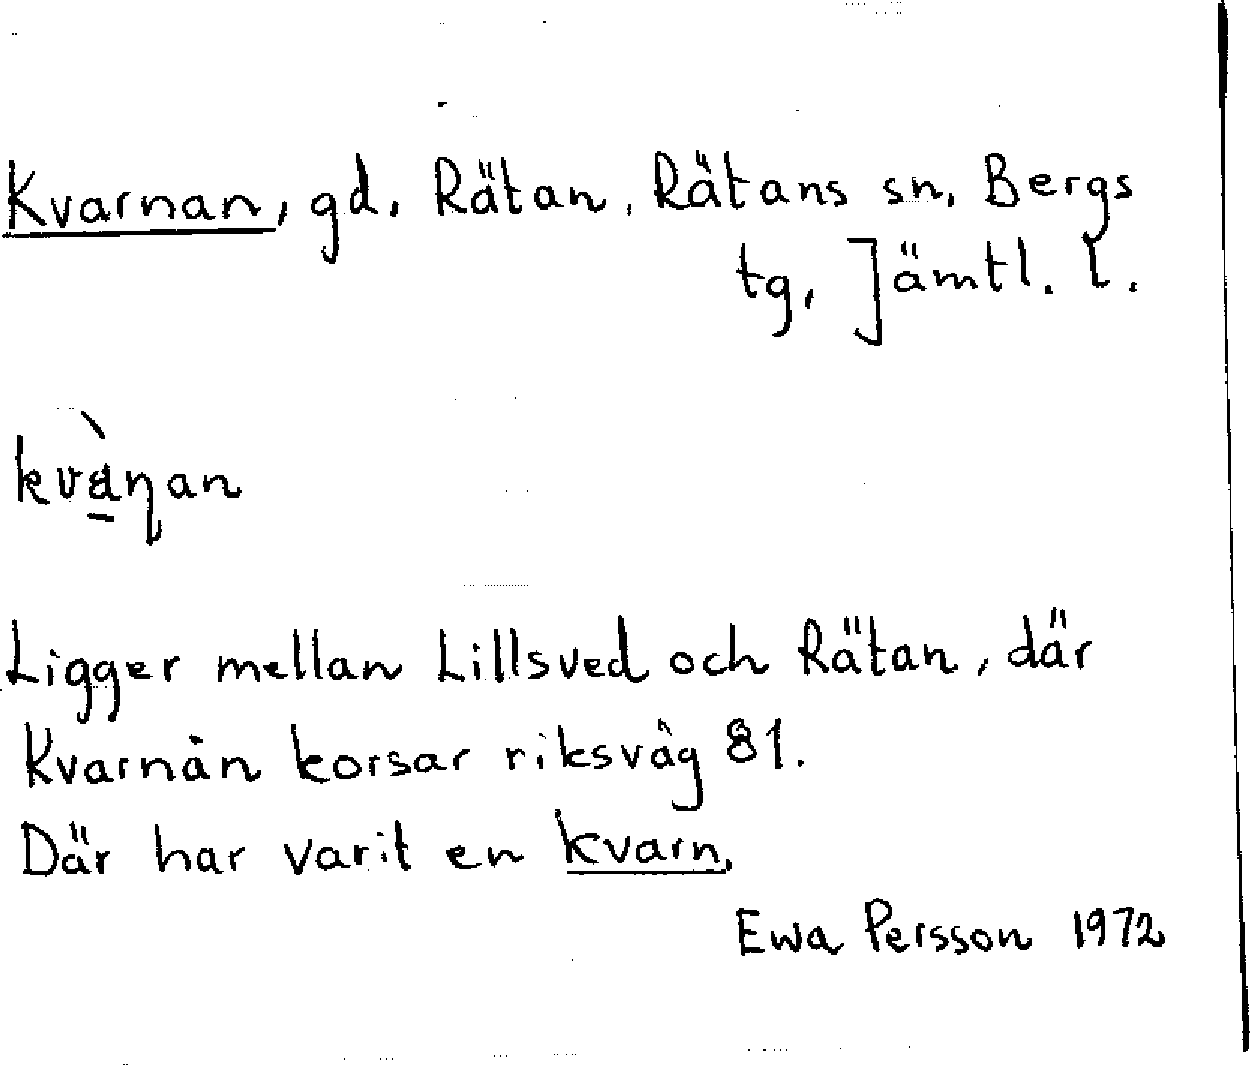 Kvarnan, gd, Rätan, Rätans sn, Bergs
tg, Jämtl. l.
kvàṇan
Ligger mellan Lillsved och Rätan, där
Kvarnån korsar riksväg 81.
Där har varit en kvarn.
Ewa Persson 1972